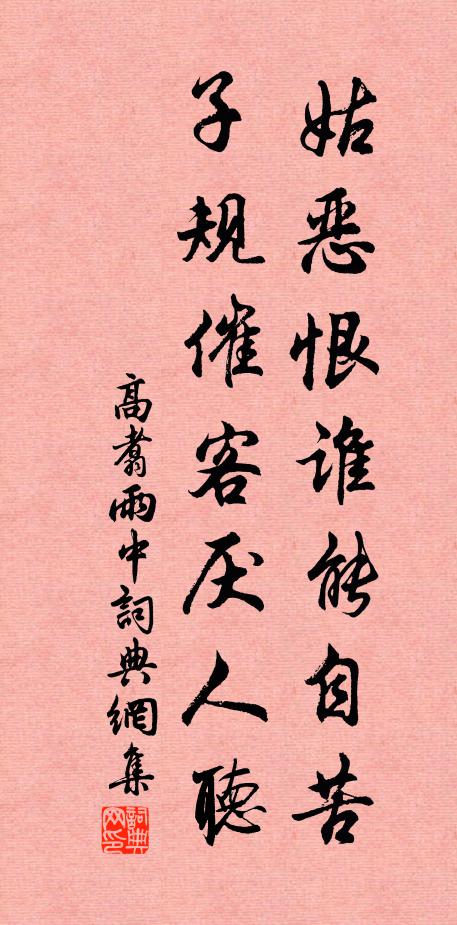 姑恶恨谁能自苦
子规催客厌人聽
高翥雨中詞典網集
詞典网印